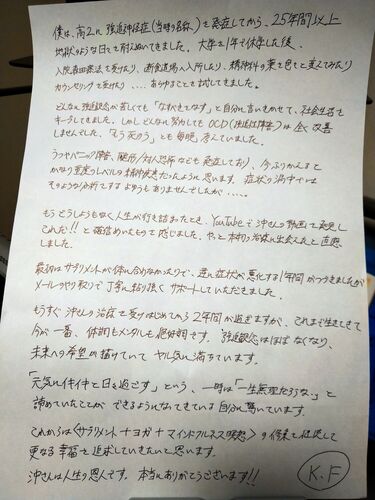 僕は、高2に強迫神経症(当時の名称)を発症してから、25年間以上
地獄のような日々を耐えぬいてきました。大学を1年で休学した後、
入院森田療法を受けたり、断食道場へ入所したり、精神科の薬を色々と変えてみたり
カウンセリングを受けたり.....あらゆることを試してきました。
どんなに強迫観念が苦しくても「なすべきをなす」と自分に言いきかせて、社会生活を
キープしてきました。しかしどんなに努力してもOCD(強迫性障害)は全く改善
しませんでした。「もう死のう」とも毎晩、考えていました。
うつやパニック障害、醜形/対人恐怖なども発症しており、今ふりかえると
かなり重度のレベルの精神疾患だったように思います。症状の渦中では
そのような分析をするよゆうもありませんでしたが.....
もうどうしようもなく人生が行き詰まったとき、YouTubeで沖さんの動画を発見し
これだ!!と確信めいたものを感じました。やっと本物の治療に出会えたと直感
しました。
最初はサプリメントが体に合わなかったりで、逆に症状が悪化する1年間がつづきましたが
メールのやり取りで丁寧に粘り強くサポートしていただきました。
もうすぐ沖さんの治療を受けはじめて2年間が過ぎますが、これまで生きてきて
今が一番、体調もメンタルも絶好調です。強迫観念はほぼなくなり、
未来への希望が描けていてヤル気に満ちています。
「元気にイキイキと日々を過ごす」という、一時は「一生無理だろうな」と
諦めていたことができるようになってきている自分に驚いています。
これからは〈サプリメント+ヨガ+マインドフルネス瞑想〉の修養を継続して
更なる幸福を追求していきたいと思います。
沖さんは人生の恩人です。本当にありがとうございます!!
K.F